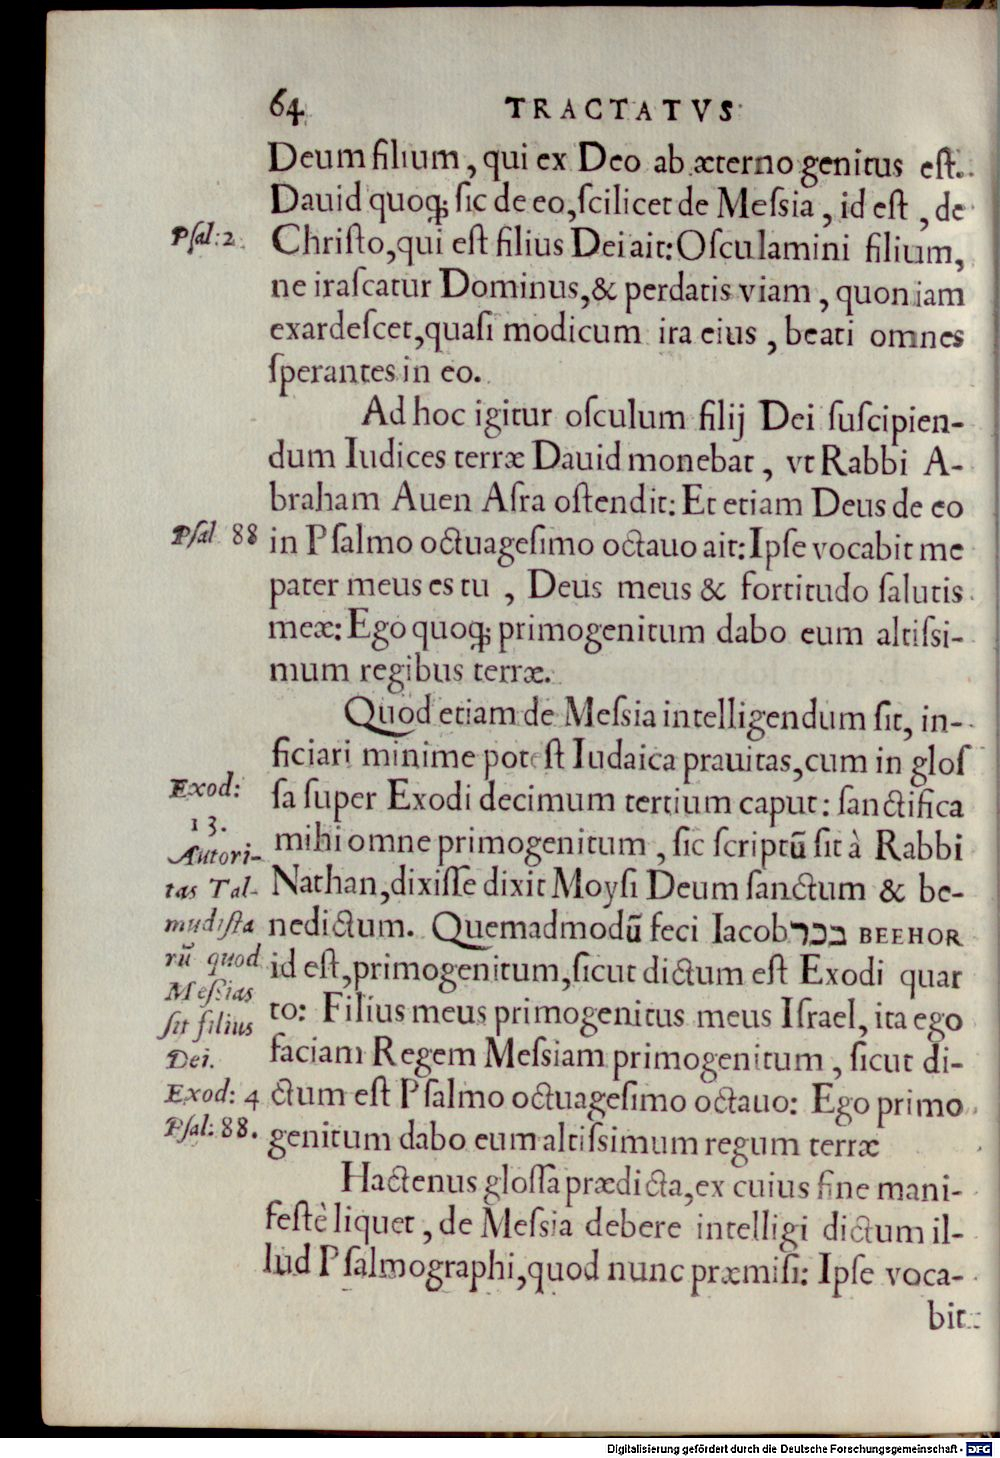 64 TRACTATVS
Deum filium, qui ex Deo ab æterno genitus eſt.
Dauid quoq; ſic de eo, ſcilicet de Meſsia, id eſt, de
Pſal: 2. Chriſto, qui eſt filius Dei ait: Oſculamini filium,
ne iraſcatur Dominus, & perdatis viam, quoniam
exardeſcet, quaſi modicum ira eius, beati omnes
ſperantes in eo.
Ad hoc igitur oſculum filij Dei ſuſcipien-
dum Iudices terræ Dauid monebat, vt Rabbi A-
braham Auen Aſra oſtendit: Et etiam Deus de eo
Pſal 88 in Pſalmo octuageſimo octauo ait: Ipſe vocabit me
pater meus es tu, Deus meus & fortitudo ſalutis
meæ: Ego quoq; primogenitum dabo eum altiſsi-
mum regibus terræ.
Quod etiam de Meſsia intelligendum ſit, in-
ficiari minime poteſt Iudaica prauitas, cum in gloſ
Exod: ſa ſuper Exodi decimum tertium caput: ſanctifica
13. mihi omne primogenitum, ſic scriptū ſit à Rabbi
Autori-
tas Tal- Nathan, dixiſſe dixit Moyſi Deum ſanctum & be-
mudiſta nedictum. Quemadmodū feci Iacob בכר BEEHOR
rū quod id eſt, primogenitum, ſicut dictum eſt Exodi quar
Meſsias
ſit filius to: Filius meus primogenitus meus Iſrael, ita ego
Dei. faciam Regem Meſsiam primogenitum, ſicut di-
Exod: 4 ctum eſt Pſalmo octuageſimo octauo: Ego primo
Pſal: 88. genitum dabo eum altiſsimum regum terræ
Hactenus gloſſa prædicta, ex cuius fine mani-
feſtè liquet, de Meſsia debere intelligi dictum il-
lud Pſalmographi, quod nunc præmiſi: Ipſe voca-
bit
Digitalisierung gefördert durch die Deutsche Forschungsgemeinschaft - DFG